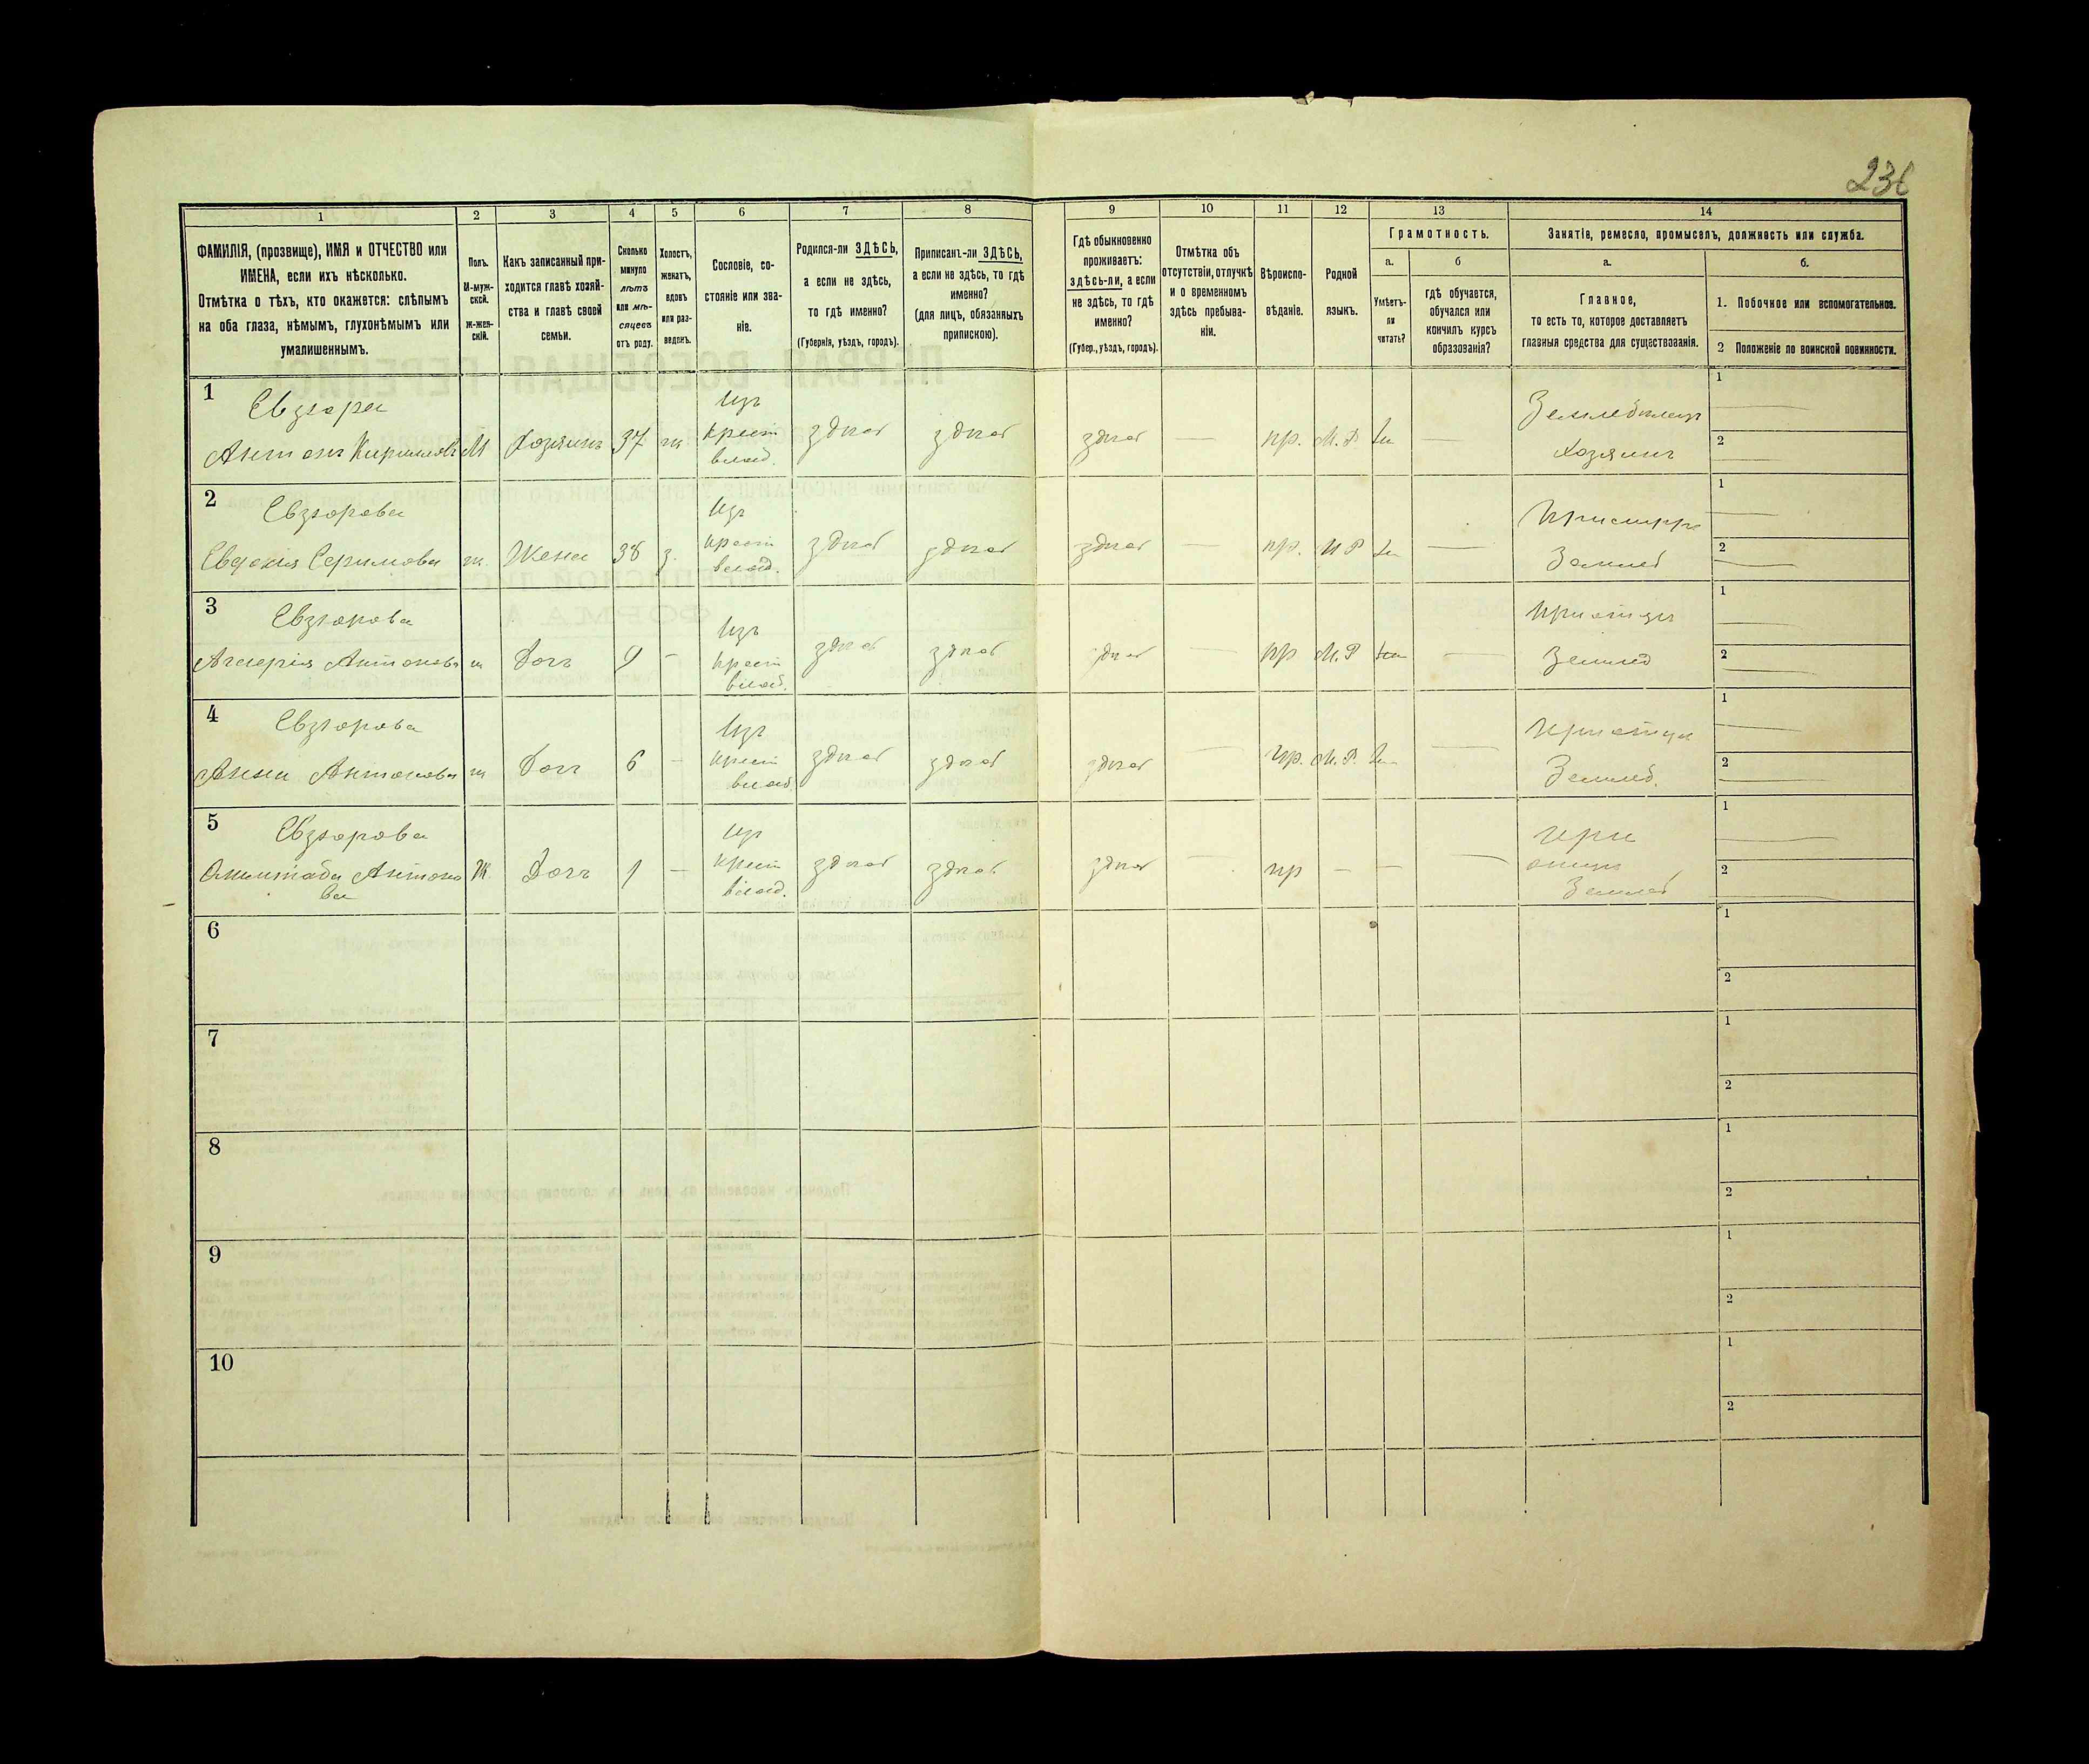 236
1 2 3 4 5 6 7 8 9 10 11 12 13 14
ФАМИЛІЯ, (прозвище), ИМЯ и ОТЧЕСТВО или
ИМЕНА, если ихъ нѣсколько.
Отмѣтка о тѣхъ, кто окажется: слѣпымъ
на оба глаза, нѣмымъ, глухонѣмымъ или
умалишеннымъ.
Полъ.
М-муж-
ской.
ж-жен-
скій.
Какъ записанный при-
ходится главѣ хозяй-
ства и главѣ своей
семьи.
Сколько
минуло
лѣтъ
или мѣ-
сяцевъ
отъ роду.
Холостъ,
женатъ,
вдовъ
или раз-
веденъ.
Сословіе, со-
стояніе или зва-
ніе.
Родился-ли ЗДѢСЬ,
а если не здѣсь,
то гдѣ именно?
(Губернія, уѣздъ, городъ).
Приписанъ-ли ЗДѢСЬ,
а если не здѣсь, то гдѣ
именно?
(для лицъ, обязанныхъ
припискою).
Гдѣ обыкновенно
проживаетъ:
здѣсь-ли, а если
не здѣсь, то гдѣ
именно?
(Губер., уѣздъ, городъ).
Отмѣтка объ
отсутствіи, отлучкѣ
и о временномъ
здѣсь пребыва-
ніи.
Вѣроиспо-
вѣданіе.
Родной
языкъ.
Грамотность.
а.
Умѣетъ-
ли
читать?
б
гдѣ обучается,
обучался или
кончилъ курсъ
образованія?
Занятіе, ремесло, промыселъ, должность или служба.
а.
Главное,
то есть то, которое доставляетъ
главныя средства для существованія.
б.
1. Побочное или вспомогательное.
2 Положеніе по воинской повинности.
1
Антонъ Кирилловъ М Хозяинъ 37 ж
Изъ
крест
влад.
здѣсь здѣсь здѣсь — пр. М. Р —
Хозяинъ
1 —
2 —
2 Евзюрова
Евдокія ж. Жена 38 з.
Изъ
крест
влад.
здѣсь здѣсь здѣсь — пр. М Р —
Землед
1 —
2 —
3 Евзюрова
Антонова ж Дочь 9 —
Изъ
крест
влад.
здѣсь здѣсь здѣсь — пр М. Р —
При отцѣ
Землед
1 —
2 —
4 Евзюрова
Анна Антонова ж Дочь 6 —
Изъ
крест
влад
здѣсь здѣсь здѣсь — пр. М. Р. —
При отцѣ
Землед.
1 —
2 —
5 Евзюрова
Антоно
ва
Ж Дочь 1 —
Изъ
крест
влад.
здѣсь здѣсь здѣсь — пр — — —
При
отцѣ
Землед
1 —
2 —
6
1
2
7
1
2
8
1
2
9
1
2
10
1
2